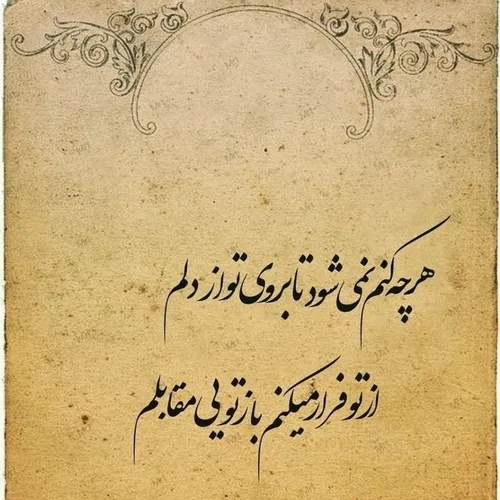 هرچه کنم نمی شود تا بروی تو از دلم
از تو فرار میکنم باز تویی مقابلم